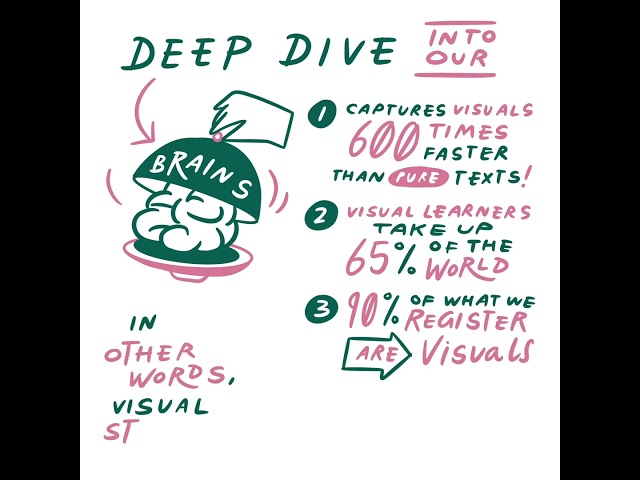 DEEP DIVE INTO OUR
BRAINS
1 CAPTURES VISUALS
600 TIMES FASTER
THAN PURE TEXTS!
2 VISUAL LEARNERS
TAKE UP
65% OF THE WORLD
3 90% OF WHAT WE REGISTER
ARE VISUALS
IN
OTHER
WORDS,
VISUAL
ST